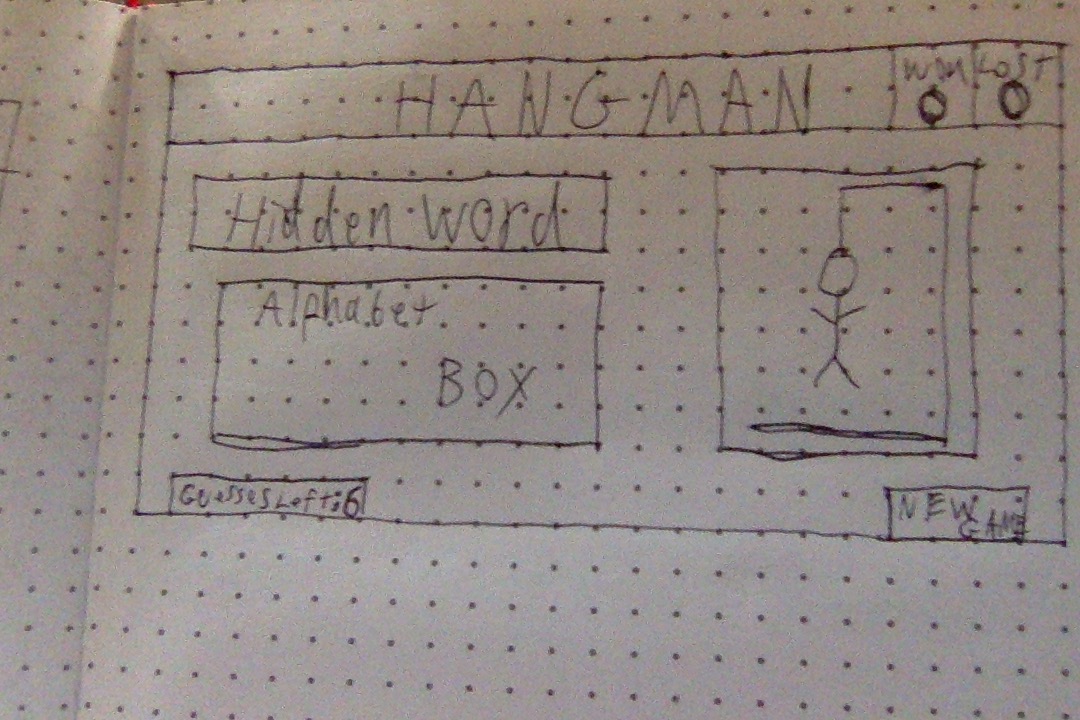 HANGMAN
WON LOST
0 0
Hidden Word
Alphabet
BOX
Guesses Left: 6
NEW
GAME